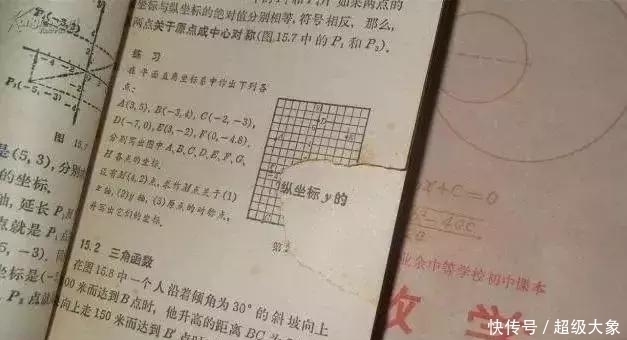 P₁(-5,-3)
图 15.7
是(5,3),分别
的坐标.
轴,延长 P
点就是 P
5,-3).
坐标是(-
P₂ 点
坐标与纵坐标的绝对值分别相等,符号相反,那么,
两点关于原点成中心对称(图15.7中的 P₁ 和 P₃).
练 习
在平面直角坐标系中作出下列各
点:
A(3,5),B(-3,4),C(-2,-3),
D(-7,0),E(3,-2),F(0,-4.8).
分别写出图中A、B、C、D、E、F、G、
H各点的坐标.
设有M(4,2)点,求作M点关于(1)
x轴,(2)y轴,(3)原点的对称点,
并写出它们的坐标.
纵坐标 y 的
第
15.2 三角函数
在图15.8中一个人沿着倾角为30°的斜坡向上
00米而达到B点时,他升高的距离BC为
向上走150米而达到B′点时
x+C=0
业余中等学校初中课本
数 学
快传号/超级大象